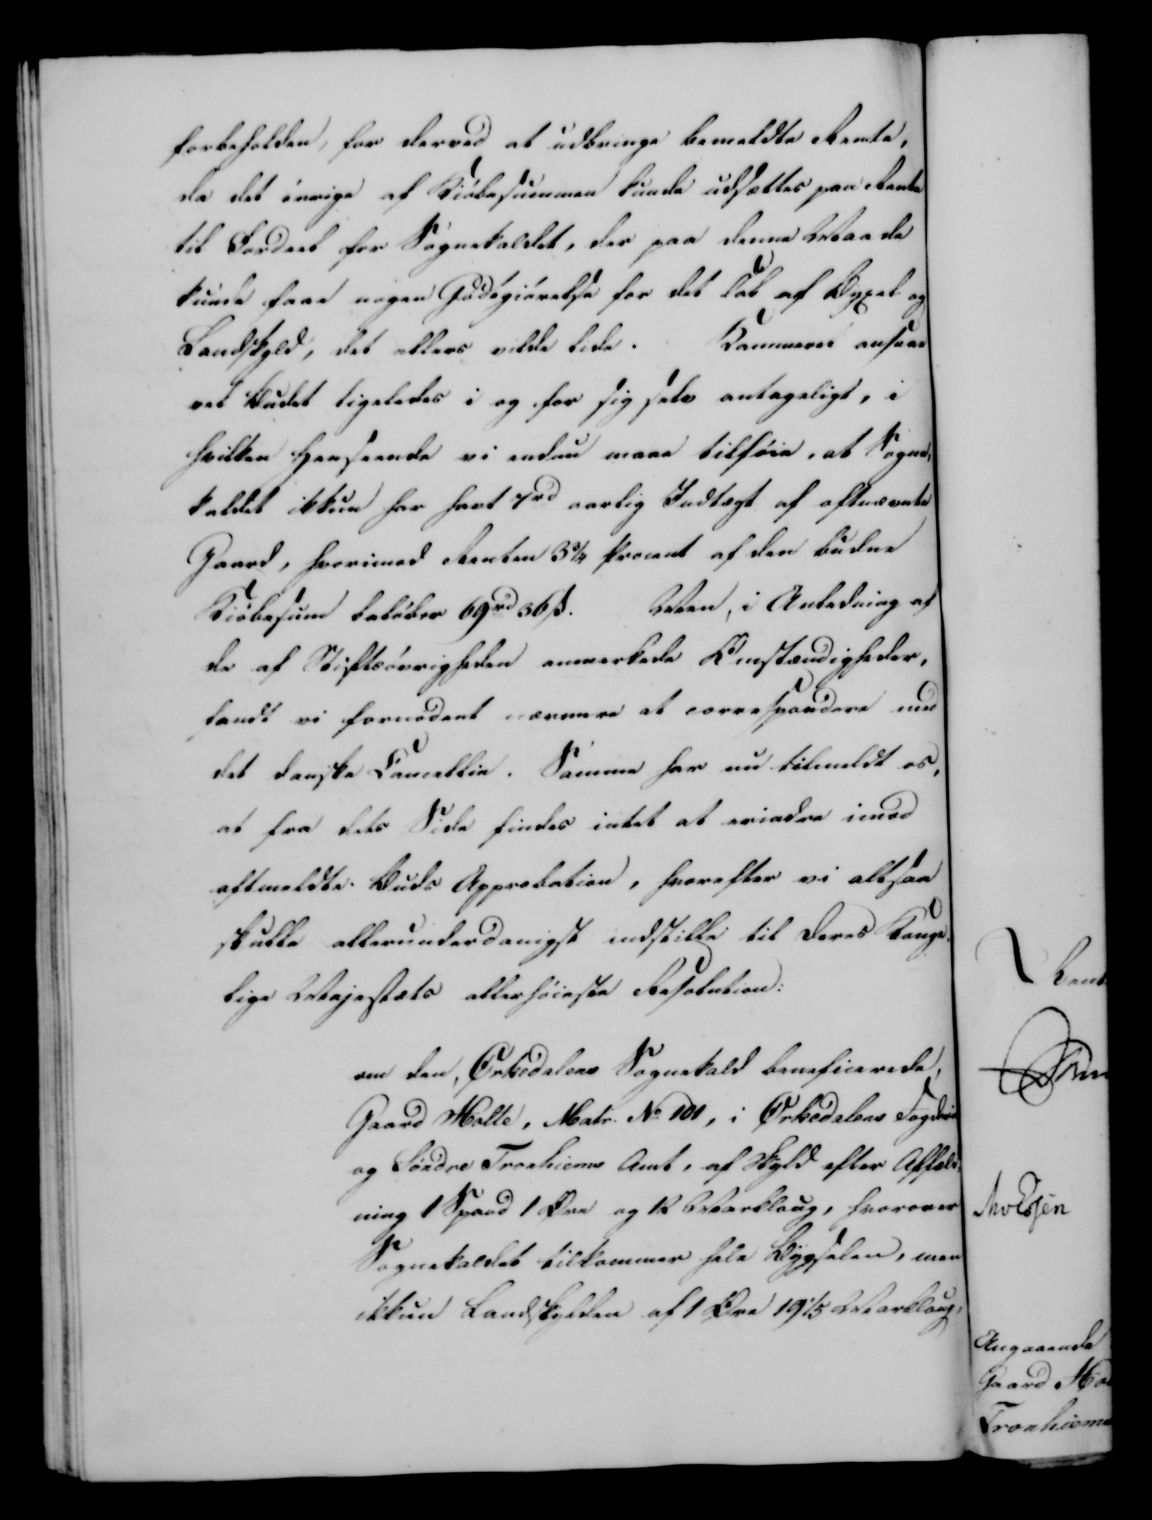 forbeholden, for derved at udbringe bemeldte Rente,
da det øvrige af Kiøbesummen kunde udsættes paa Rente
til Fordeel for Sognekaldet, der paa denne Maade
kunde faae nogen Godtgiørelse for det Tab af Byxel og
Landskyld, det ellers vilde lide. Kammeret ansaae
vel Budet ligeledes i og for sig selv antageligt, i
hvilken Henseende vi endnu maae tilføie, at Sogne-
kaldet ikkun har havt 7rd aarlig Indtægt af oftnævnte
Gaard, hvorimod Renten 3¾ Procent af den budne
Kiøbesum beløber 69rd 36 ß. Men, i Anledning af
de af Stiftsøvrigheden anmærkede Omstændigheder,
fandt vi fornødent nærmere at correspondere med
det danske Cancellie. Samme har nu tilmeldt os,
at fra dets Side findes intet at erindre imod
oftmeldte Buds Approbation, hvorefter vi altsaa
skulle allerunderdanigst indstille til Deres Konge-
lige Majestæts allerhøieste Resolution:
om den, Ørkedalens Sognekald beneficerede,
Gaard Moltè, Matr. No 101, i Ørkedalens Fogderie
og Søndre Tronhiems Amt, af Skyld efter Affæld-
ning 1 Spand 1 Øre og 12 Marklaug, hvorover
Sognekaldet tilkommer hele Bygselen, men
ikkun Landskylden af 1 Øre 19⅕ Marklaug,
Rent
Angaaende
Gaard Mo
Tronhiems